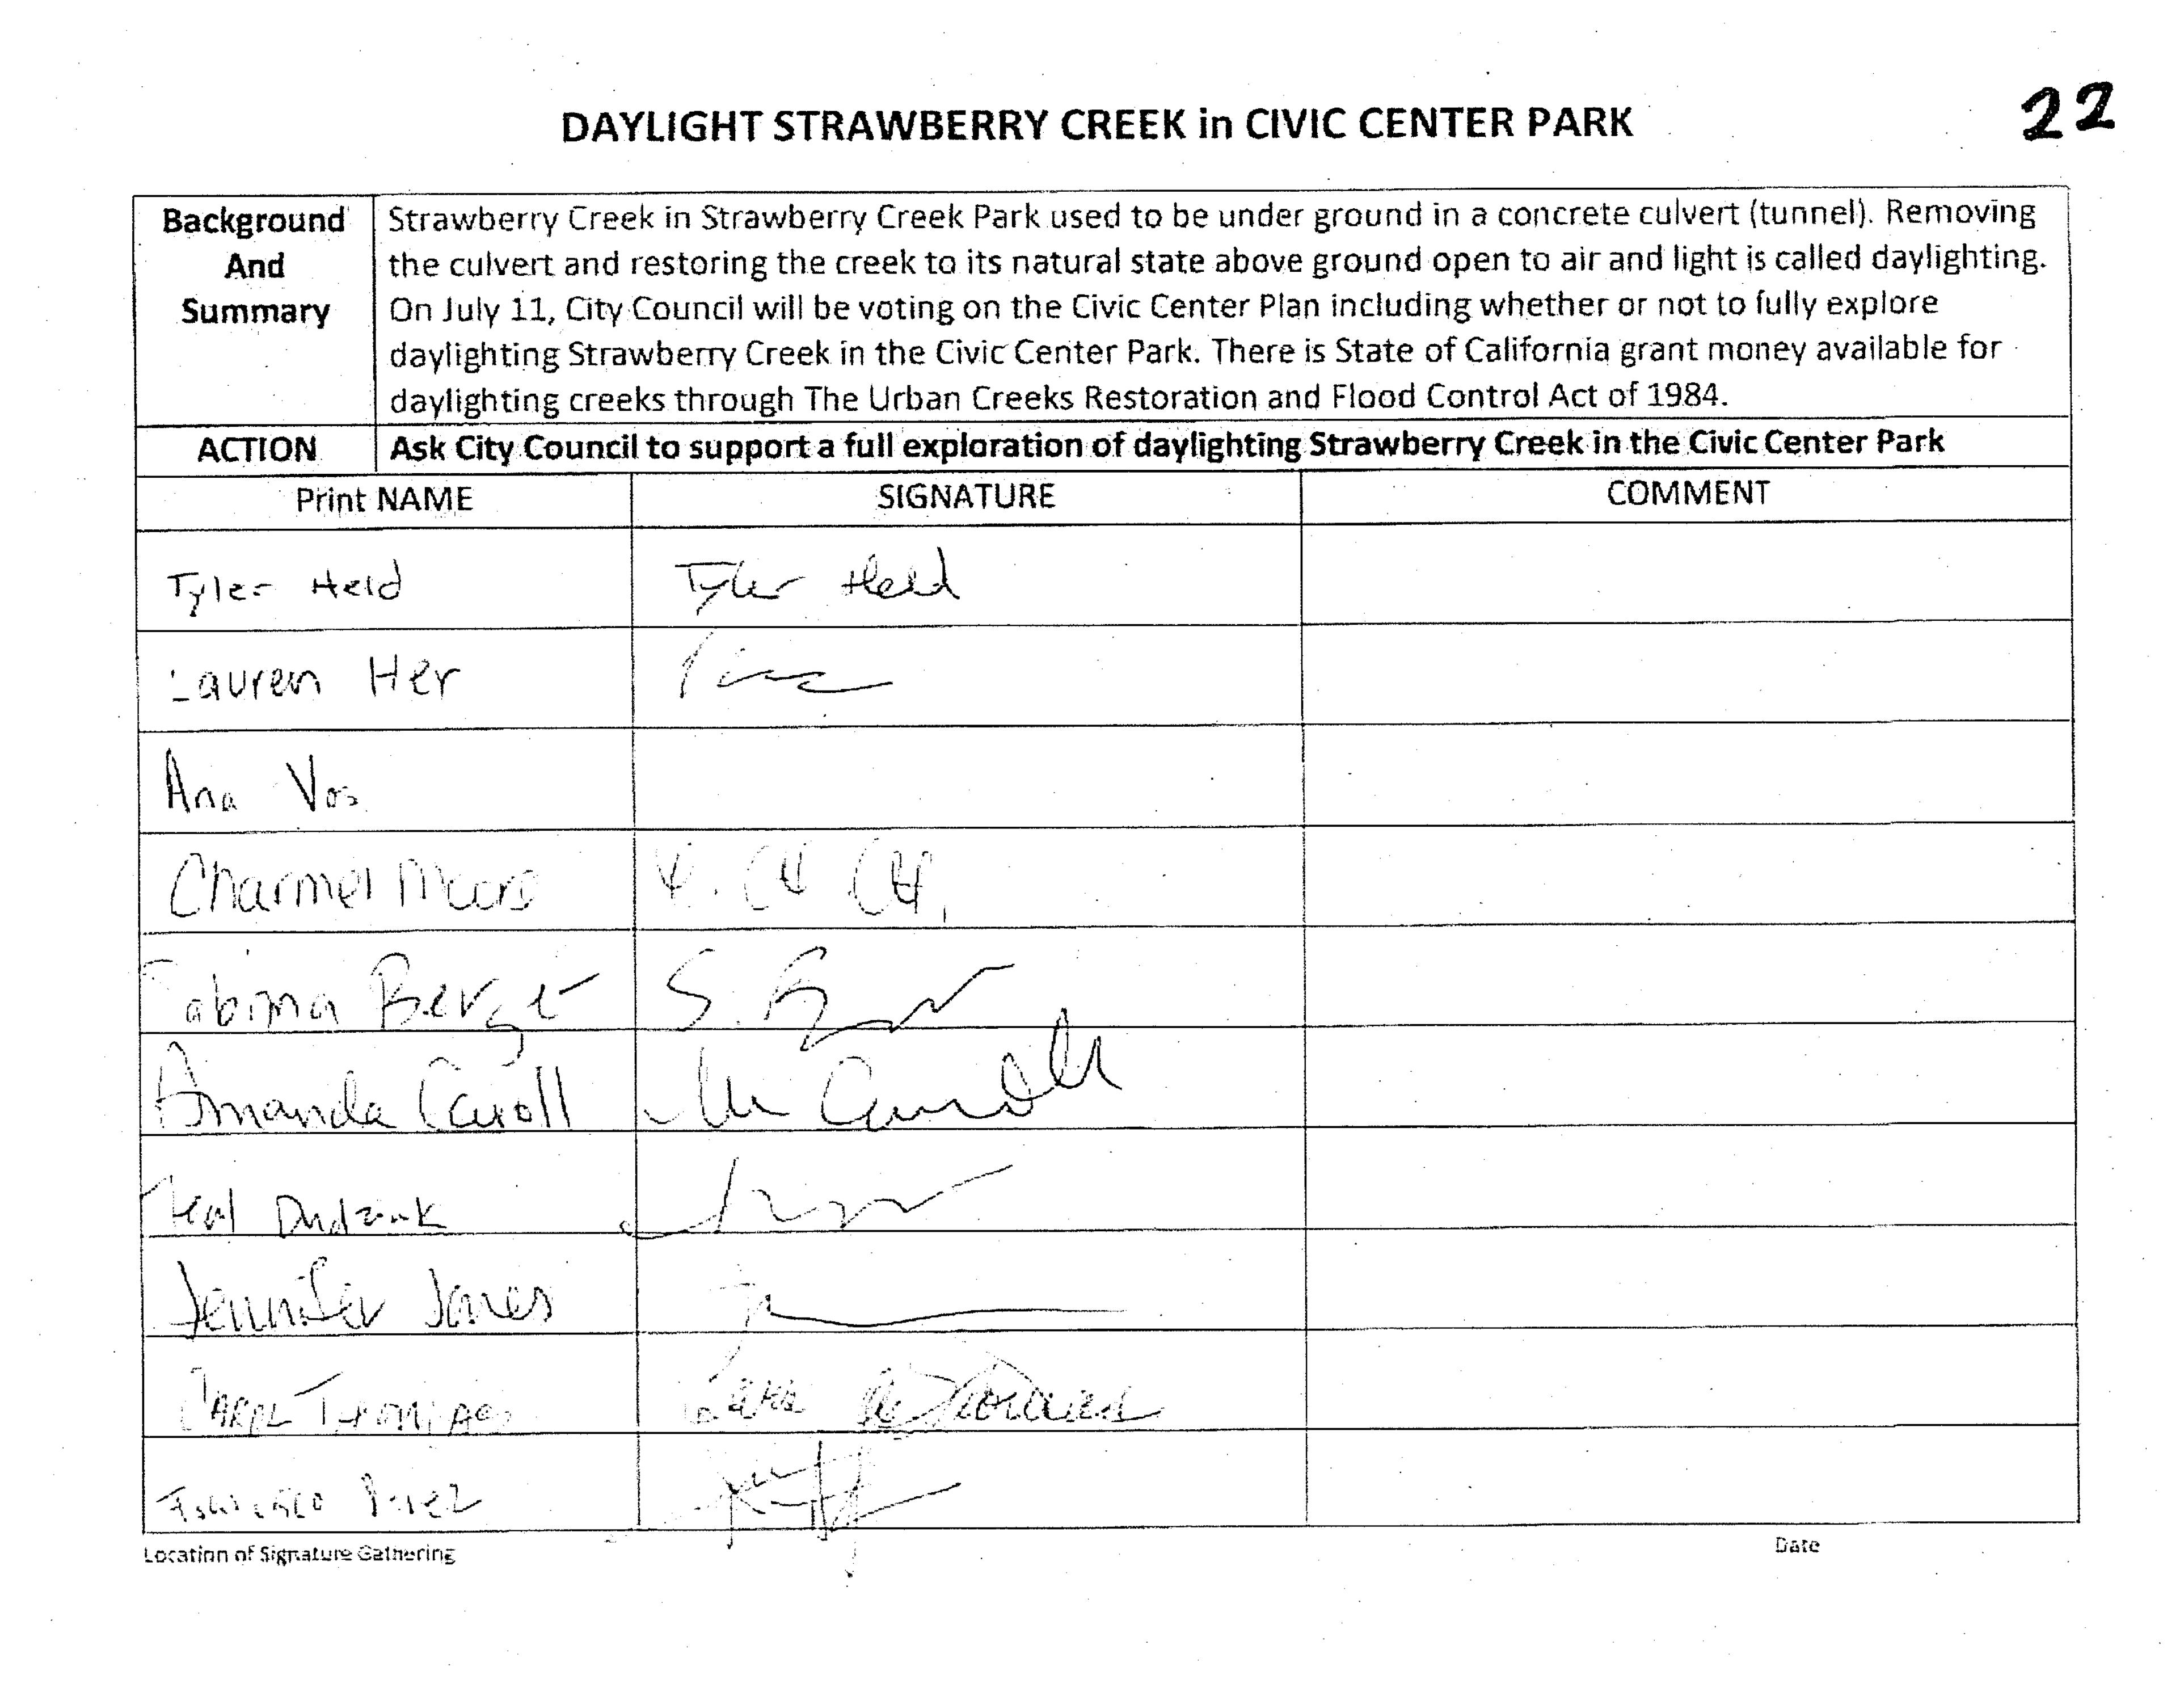 DAYLIGHT STRAWBERRY CREEK in CIVIC CENTER PARK
22
Background And Summary
Strawberry Creek in Strawberry Creek Park used to be under ground in a concrete culvert (tunnel). Removing
the culvert and restoring the creek to its natural state above ground open to air and light is called daylighting.
On July 11, City Council will be voting on the Civic Center Plan including whether or not to fully explore
daylighting Strawberry Creek in the Civic Center Park. There is State of California grant money available for
daylighting creeks through The Urban Creeks Restoration and Flood Control Act of 1984.
ACTION Ask City Council to support a full exploration of daylighting Strawberry Creek in the Civic Center Park
Print NAME SIGNATURE COMMENT
Tyler Held Tyler Held
Lauren Her
Ana Vos
Charmel
Sabina Berger S.
Amanda Caroll Caroll
Jennifer Jones
CAROL
Location of Signature Gathering Date